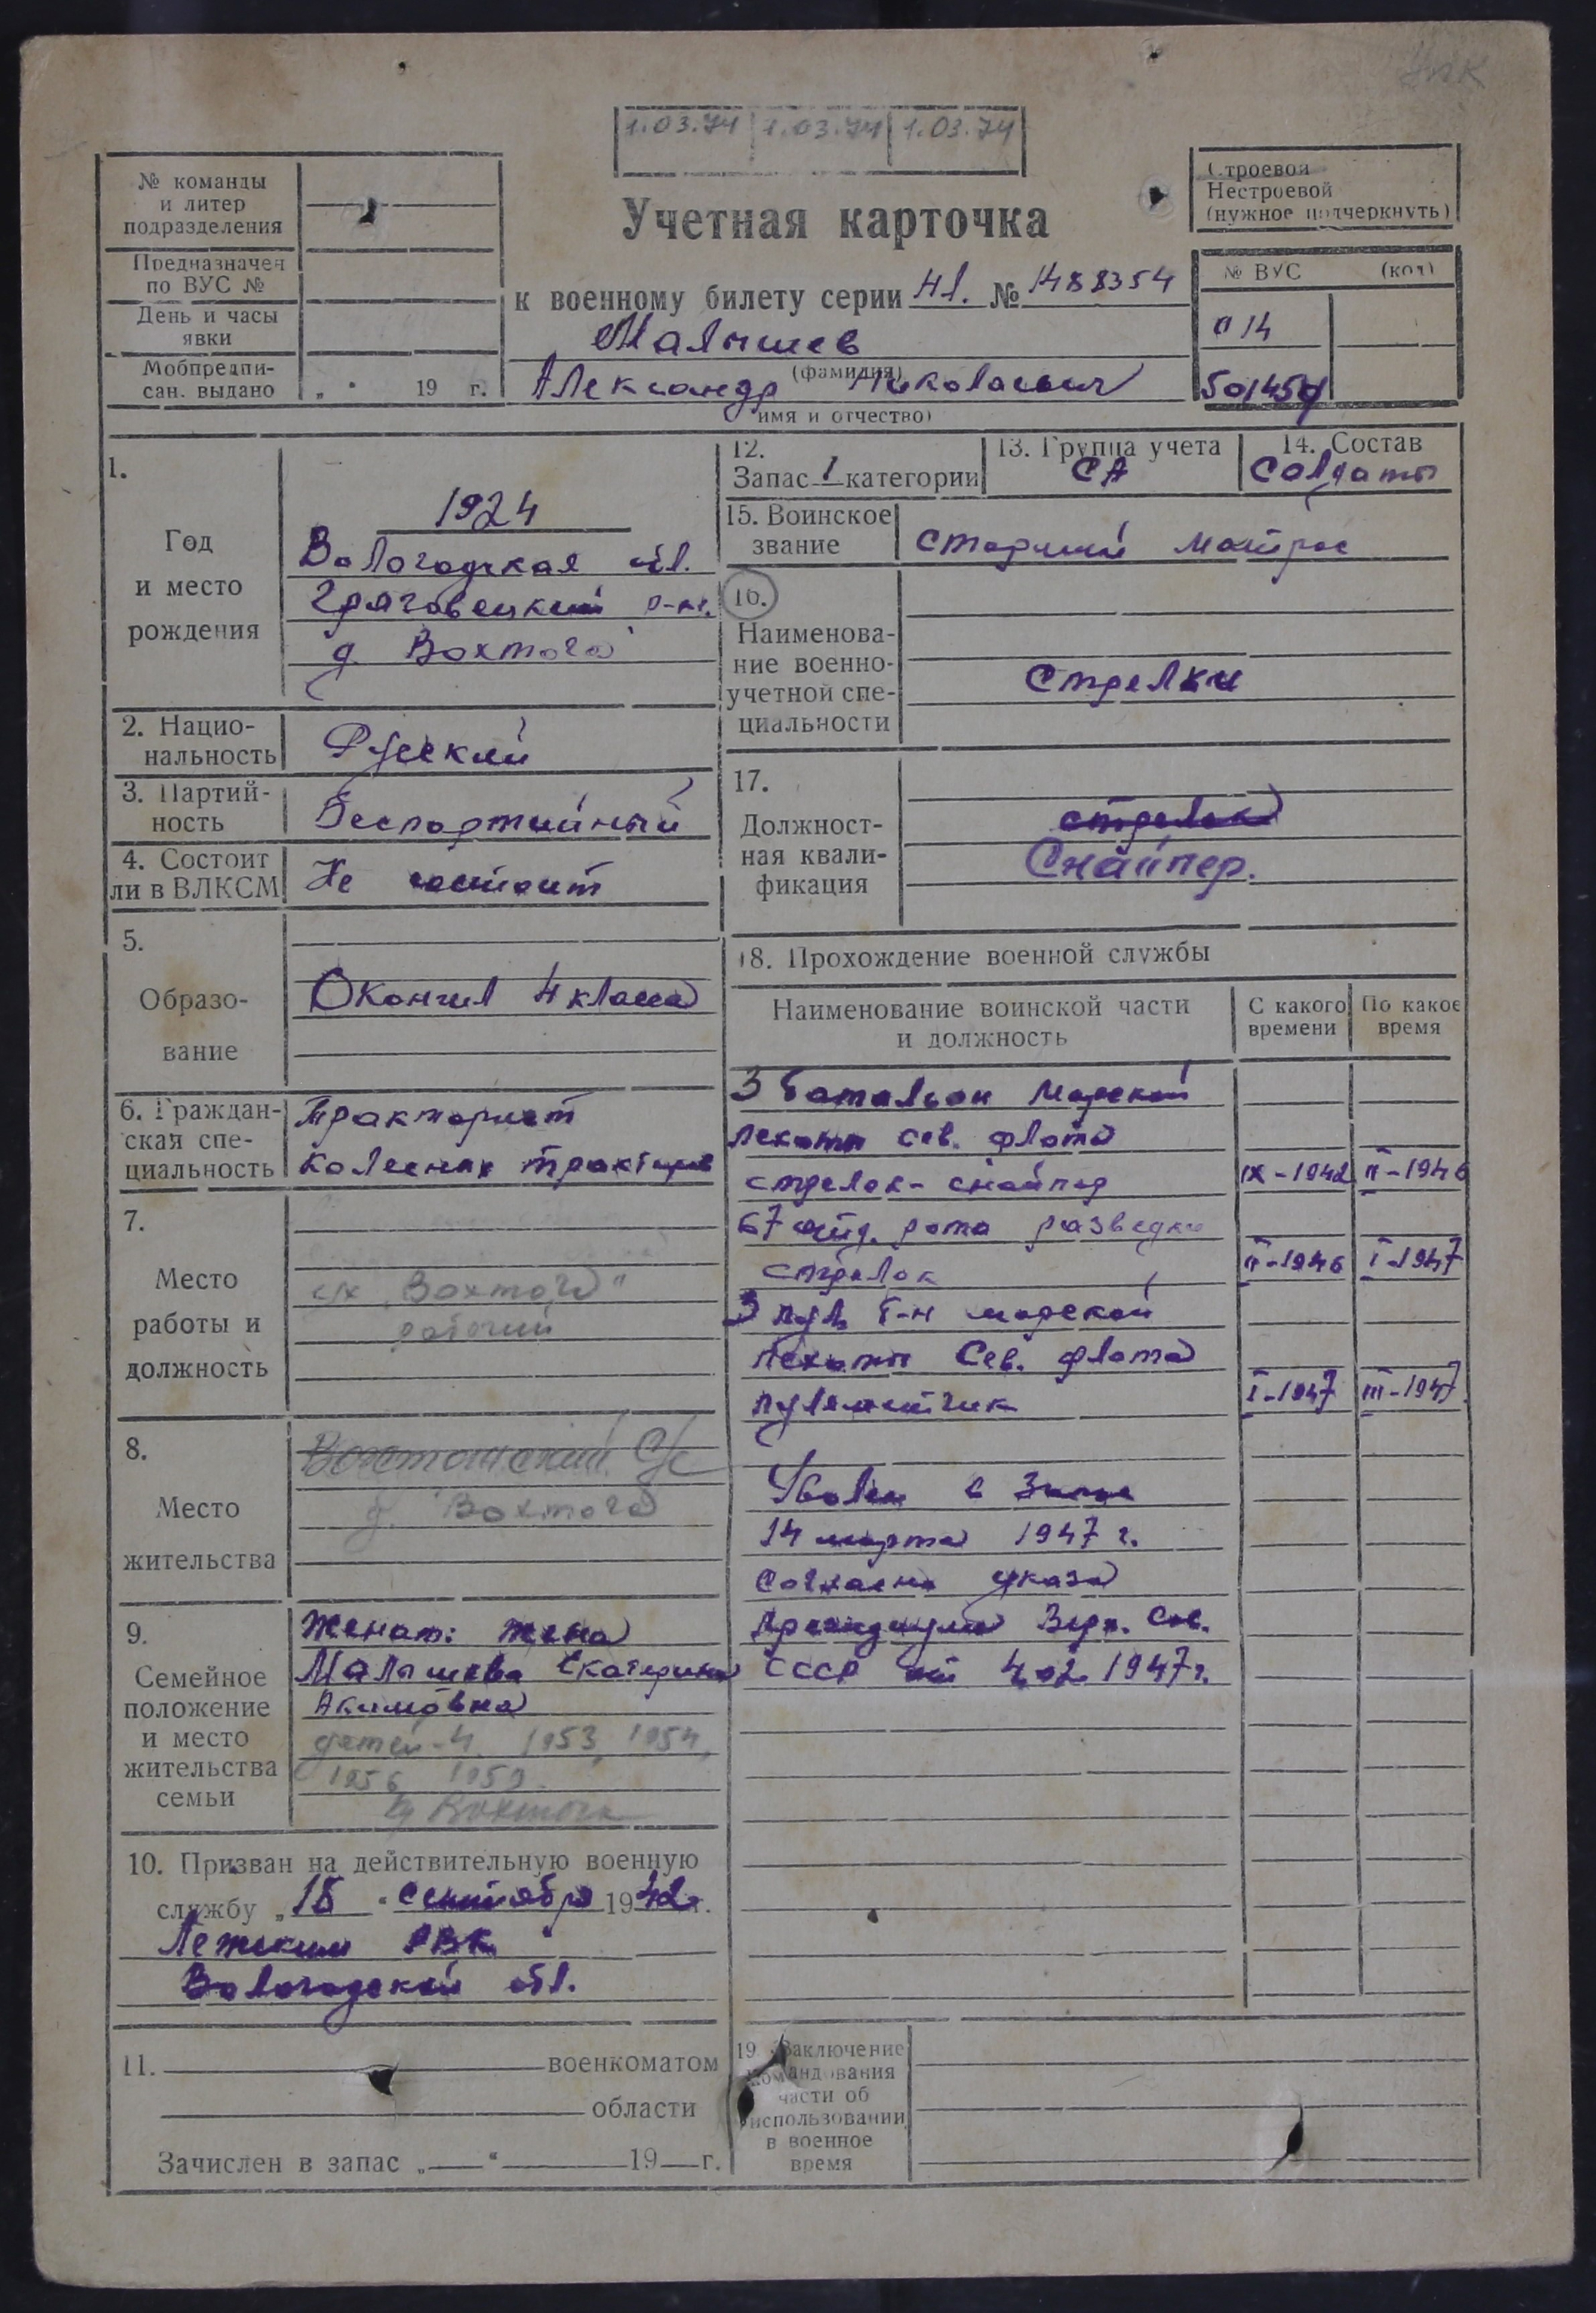 1.03.74 1.03.74 1.03.74
№ команды
и литер
подразделения
Предназначен
по ВУС №
День и часы
явки
Мобпредпи-
сан. выдано „ " 19 г.
Строевой
Нестроевой
(нужное подчеркнуть)
Учетная карточка
к военному билету серии № 1488354
Малышев
(фамилия)
Александр Николаевич
имя и отчество)
№ ВУС (код)
014
1.
Год
и место
рождения
1924
Вологодская обл.
Грязовецкий р-н.
д. Вохтога
2. Нацио-
нальность
Русский
3. Партий-
ность
Беспартийный
4. Состоит
ли в ВЛКСМ
Не состоит
5.
Образо-
вание
Окончил 4 класса
6. Граждан-
ская спе-
циальность
Тракторист
колесных тракторов
7.
Место
работы и
должность
с/х „Вохтога"
рабочий
8.
Место
жительства
Вохтожский С/с
д. Вохтога
9.
Семейное
положение
и место
жительства
семьи
Женат: жена
Малышева Екатерина
Акимовна
детей-4. 1953, 1954,
1956 1959.
д Вохтога
10. Призван на действительную военную
службу „18" сентября 1942г.
Лежским РВК
Вологодской обл.
11. военкоматом
области
Зачислен в запас „ " 19 г.
12.
Запас 1 категории
13. Группа учета
СА
14. Состав
Солдаты
15. Воинское
звание
старший матрос
16.
Наименова-
ние военно-
учетной спе-
циальности
Стрелки
17.
Должност-
ная квали-
фикация
стрелок
Снайпер.
18. Прохождение военной службы
Наименование воинской части
и должность
С какого
времени
По какое
время
3 батальон Морской
пехоты сев. флота
стрелок-снайпер IX-1942 II-1946
67 отд. рота разведки
стрелок II-1946 I-1947
3 пул. б-н морской
пехоты Сев. флота
пулеметчик I-1947 III-1947.
Уволен в Запас
14 марта 1947 г.
Согласно указа
Президиума Верх. Сов.
СССР от 1947г.
19. Заключение
командования
части об
использовании
в военное
время